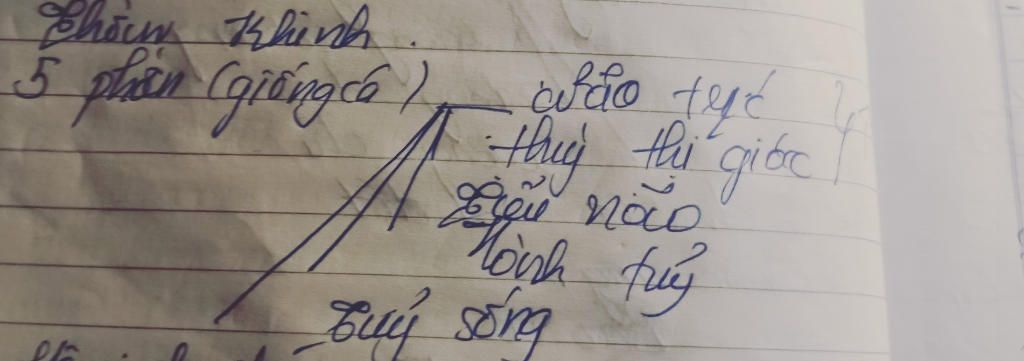 Thần Khinh.
5 phần (giống cá) não trực
thuỳ thị giác
Tiểu não
hành tuỷ
Tuỷ sống